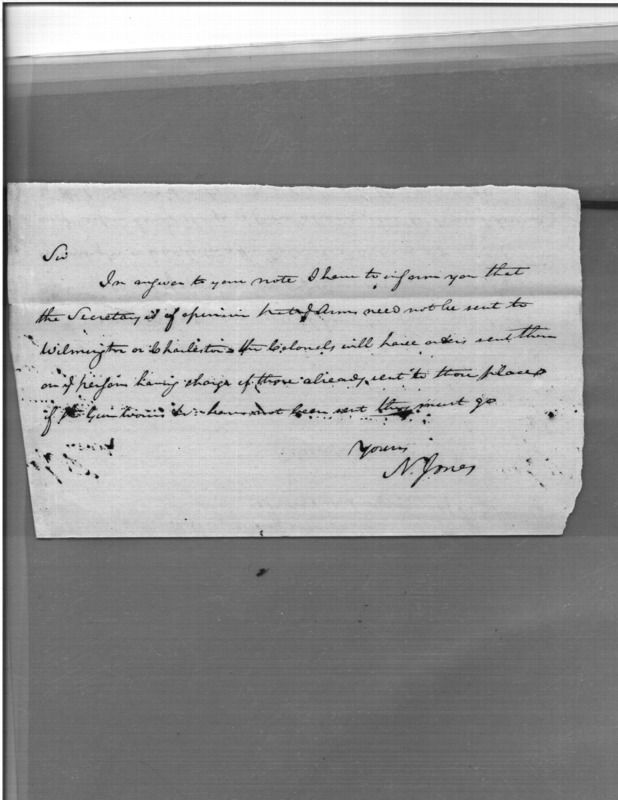 Sir
In answer to your note I have to inform you that
the Secretary is of opinion that Arms need not be sent to
Wilmington or Charleston the Colonels will have orders sent them
or persons having charge of those already sent to those places
if have not been sent they must go
Yours
N. Jones